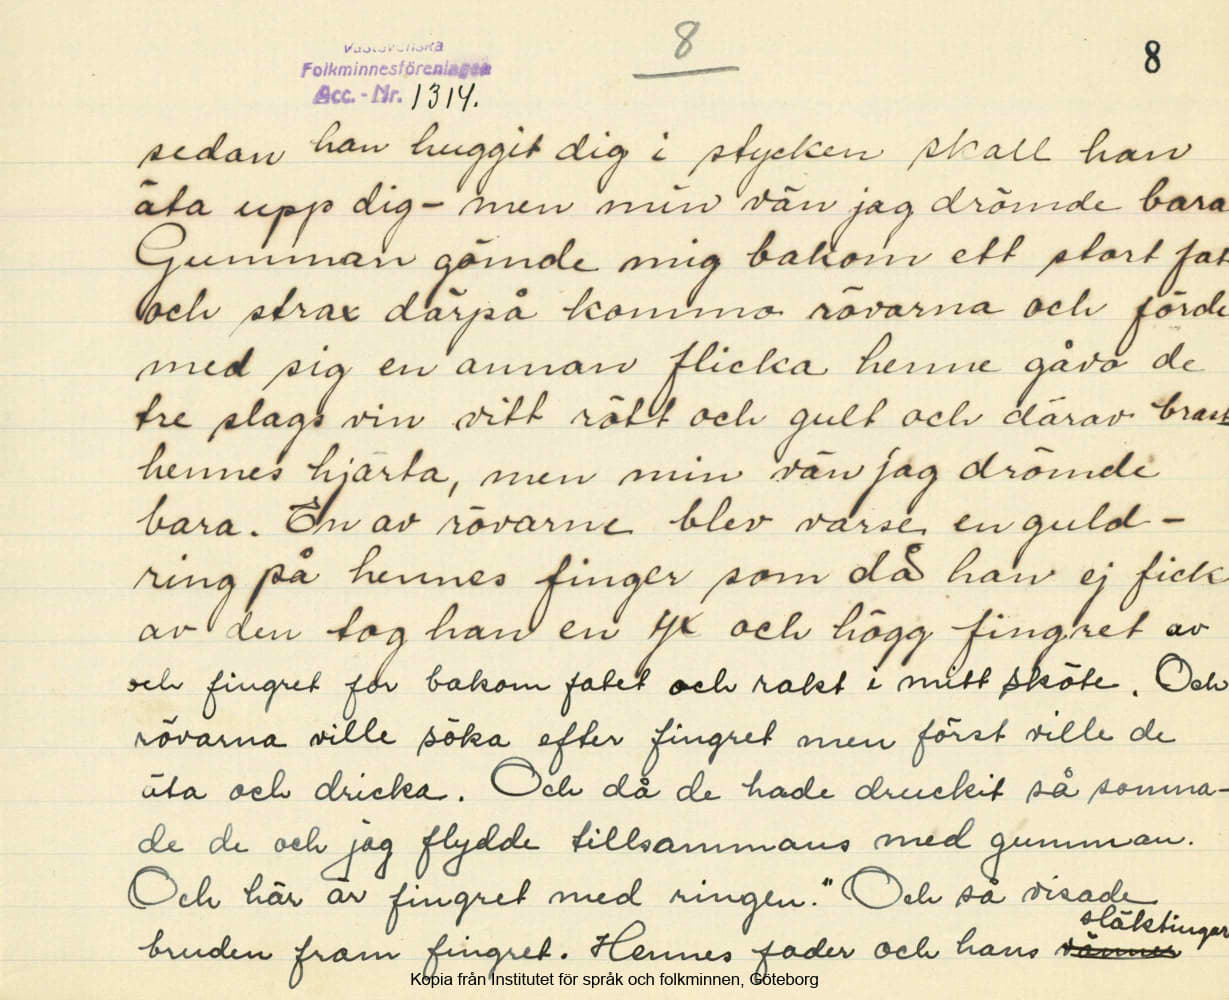 8
8
Västsvenska
Folkminnesföreningen
Acc.-Nr. 1314.
sedan han huggit dig i stycken skall han
äta upp dig - men min vän jag drömde bara
Gumman gömde mig bakom ett stort fat
och strax därpå kommo rövarna och förde
med sig en annan flicka henne gåvo de
tre slags vin vitt rött och gult och därav brast
hennes hjärta, men min vän jag drömde
bara. En av rövarne blev varse en guld-
ring på hennes finger som då han ej fick
av den tog han en yx och högg fingret av
och fingret for bakom fatet och rakt i mitt sköte. Och
rövarna ville söka efter fingret men först ville de
äta och dricka. Och då de hade druckit så somna-
de de och jag flydde tillsammans med gumman.
Och här är fingret med ringen." Och så visade
bruden fram fingret. Hennes fader och hans vänner släktingar
Kopia från Institutet för språk och folkminnen, Göteborg